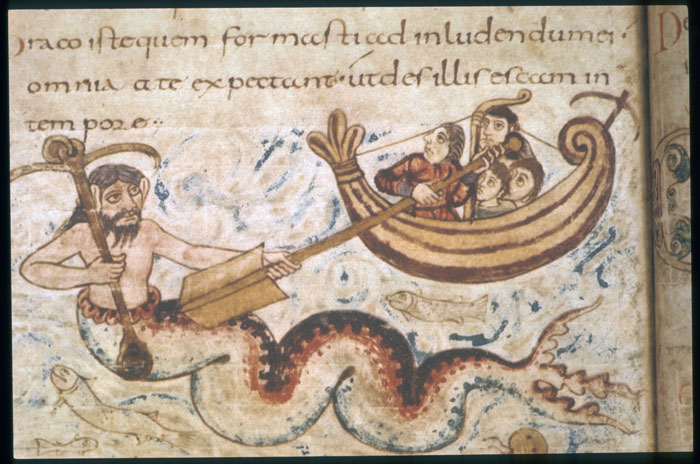 Draco iste quem formasti ad inludendum ei ·
omnia a te expectant · ut des illis escam in
tempore ··